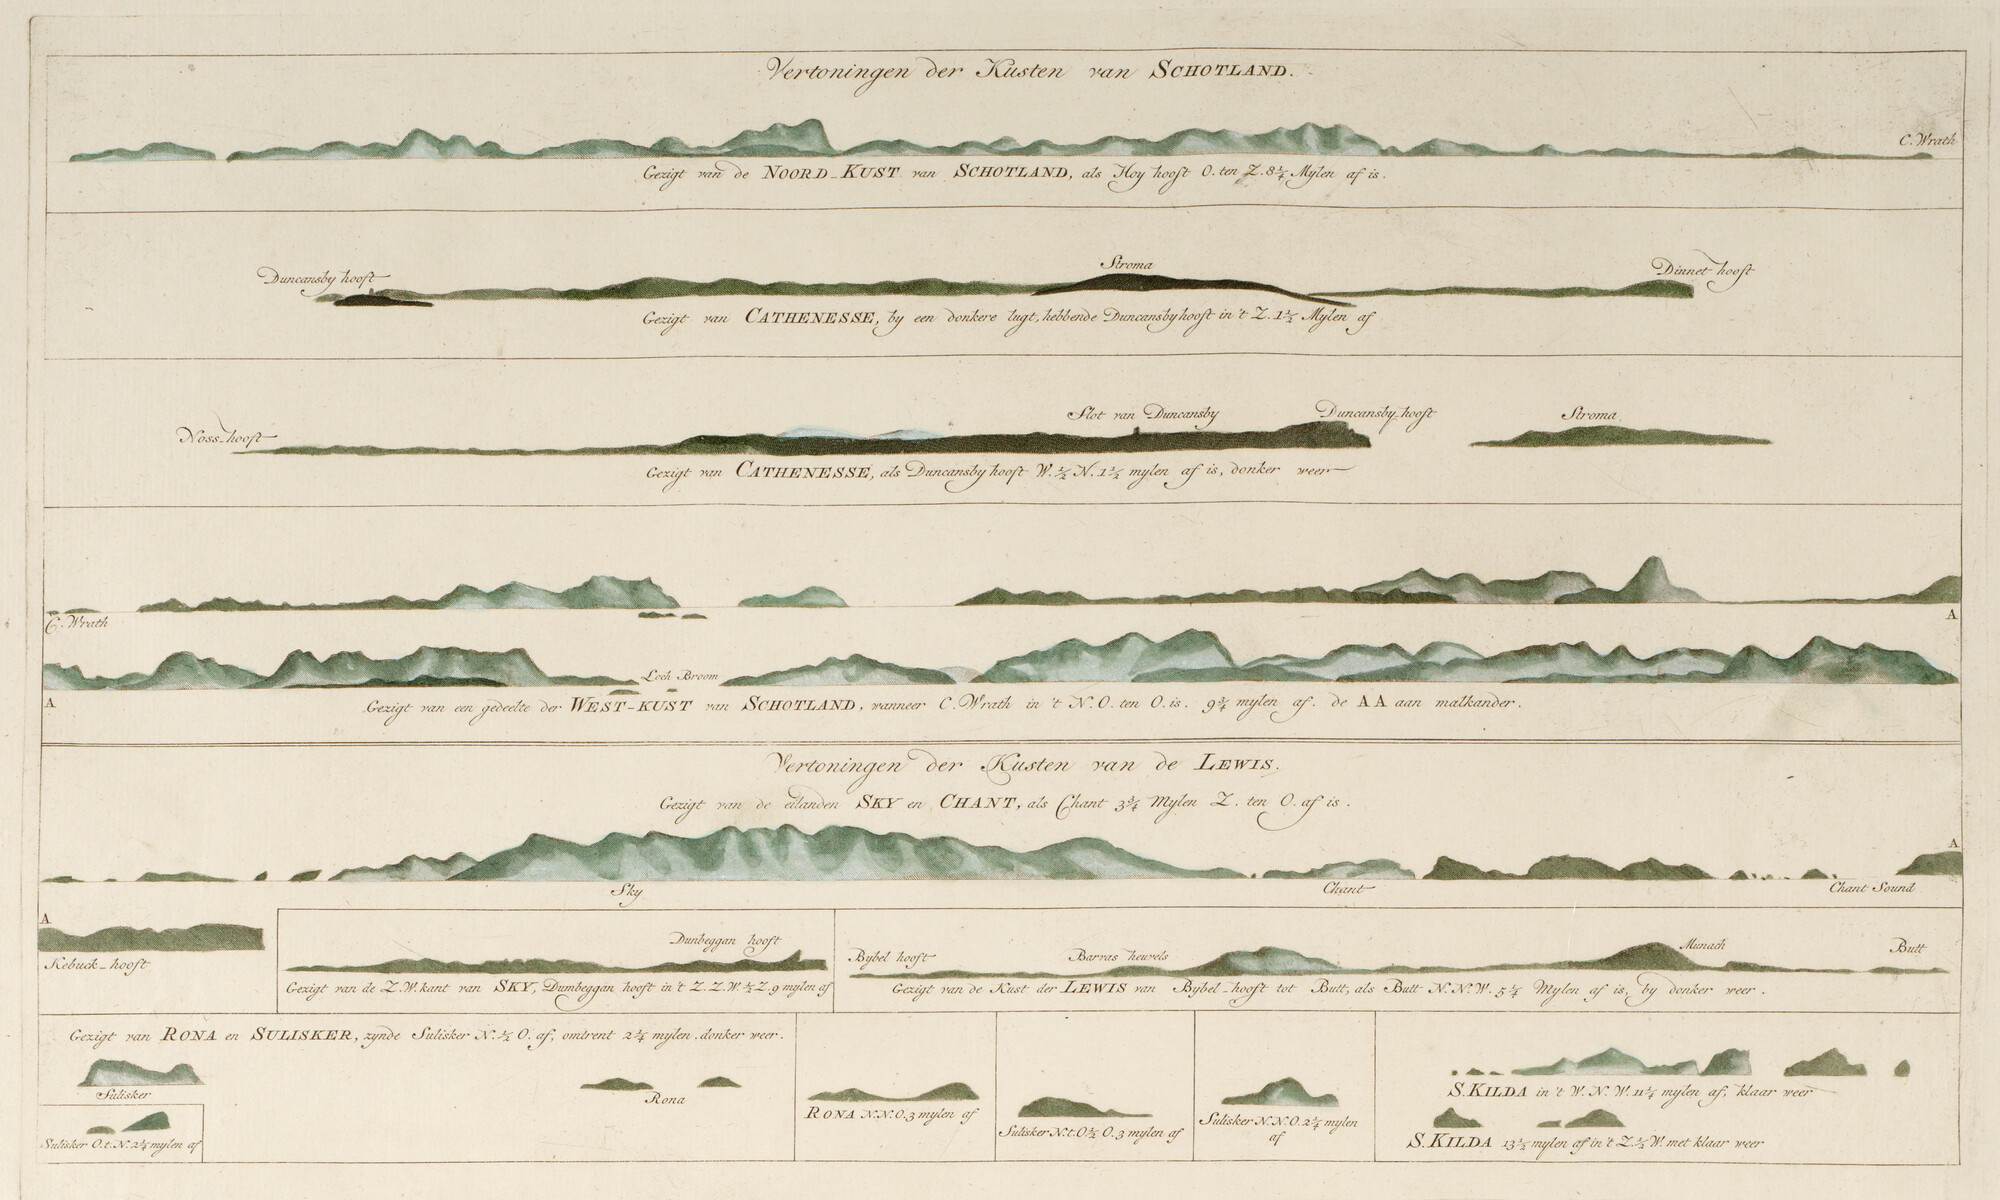 Vertoningen der Kusten van SCHOTLAND.
C. Wrath
Gezigt van de NOORD-KUST van SCHOTLAND, als Hoy hooft O. ten Z. 8¼ Mylen af is.
Duncansby hooft
Stroma
Dinnet hooft
Gezigt van CATHENESSE, by een donkere lugt, hebbende Duncansby hooft in 't Z. 1½ Mylen af
Noss-hooft
Slot van Duncansby
Duncansby-hooft
Stroma
Gezigt van CATHENESSE, als Duncansby hooft W. ½ N. 1½ mylen af is, donker weer
C. Wrath
A
Loch Broom
A
Gezigt van een gedeelte der WEST-KUST van SCHOTLAND, wanneer C. Wrath in 't N. O. ten O. is. 9¾ mylen af. de A A aan malkander.
Vertoningen der Kusten van de LEWIS.
Gezigt van de eilanden SKY en CHANT, als Chant 3¾ Mylen Z. ten O. af is.
A
Sky
Chant
Chant Sound
A
Kebuck-hooft
Dunbeggan hooft
Gezigt van de Z.W. kant van SKY, Dumbeggan hooft in 't Z. Z. W. ½ Z. 9 mylen af
Bybel hooft
Barvas heuvels
Munach
Butt
Gezigt van de Kust der LEWIS van Bybel-hooft tot Butt, als Butt N. N. W. 5¼ Mylen af is, by donker weer.
Gezigt van RONA en SULISKER, zynde Sulisker N. ½ O. af, omtrent 2¼ mylen, donker weer.
Sulisker
Rona
Sulisker O. t. N. 2¼ mylen af
RONA N.N.O. 3 mylen af
Sulisker N. t. O ½ O. 3 mylen af
Sulisker N. N. O. 2¼ mylen
af
S. KILDA in 't W. N. W. 11¼ mylen af, klaar weer
S. KILDA 13½ mylen af in 't Z. ½ W. met klaar weer